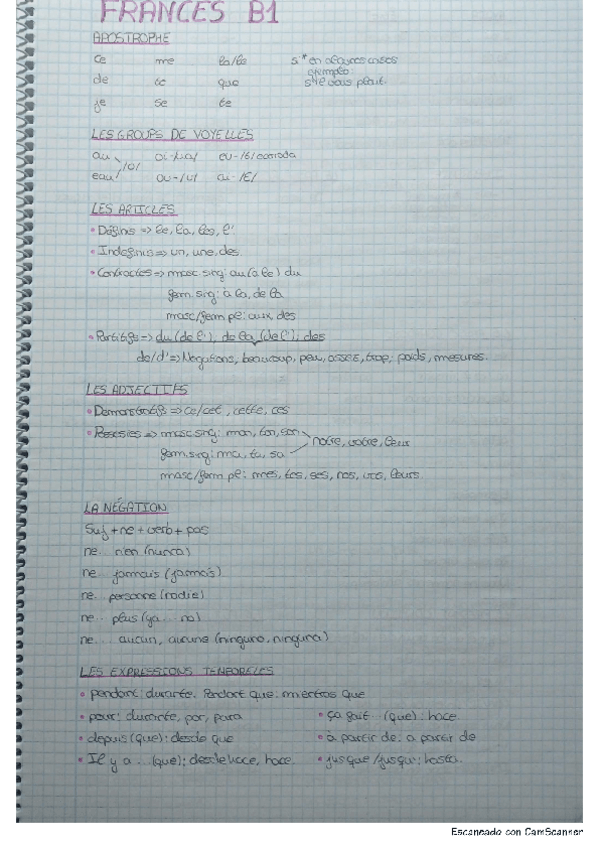 FRANCÉS B1
APOSTROPHE
ce me la/le s' *en algunos casos
ejemplo:
de ne que s'il vous plaît
je se te
LES GROUPS DE VOYELLES
au \ oi-/ua/ eu-/E/ cerrada
/o/
eau / ou-/u/ ai-/E/
LES ARTICLES
• Définis => le, la, les, l'
• Indéfinis => un, une, des
• Contractés => masc sing: au (à le) du
fem. sing: à la, de la
masc/fem pl: aux, des
• Partitifs => du (de l'), de la (de l'), des
de/d' => Negations, beaucoup, peu, assez, trop, poids, mesures.
LES ADJECTIFS
• Demonstratifs => ce/cet, cette, ces
• Possesifs => masc sing: mon, ton, son
notre, votre, leur
fem sing: ma, ta, sa
masc/fem pl: mes, tes, ses, nos, vos, leurs.
LA NÉGATION
Suj + ne + verb + pas
ne... rien (nunca)
ne... jamais (jamás)
ne... personne (nadie)
ne... plus (ya... no)
ne... aucun, aucune (ninguno, ninguna)
LES EXPRESSIONS TEMPORELES
• pendant: durante. Pendant que: mientras que
• pour: durante, por, para • ça fait... (que): hace.
• depuis (que): desde que • à partir de: a partir de
• Il y a... (que): desde hace, hace. • jusque/jusqu': hasta.
Escaneado con CamScanner